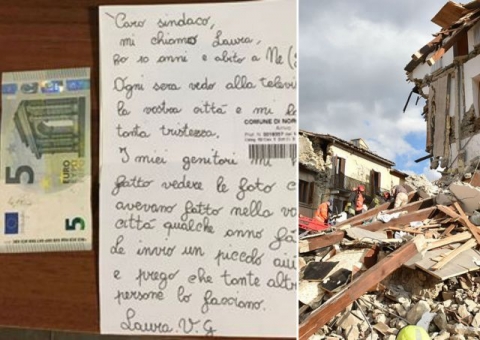 5
EURO
5
"Caro sindaco,
mi chiamo Laura,
ho 10 anni e abito a Ne (
Ogni sera vedo alla televi
la vostra città e mi
tanta tristezza.
COMUNE DI NOR
I miei genitori mi
fatto vedere le foto c
avevano fatto nella vo
città qualche anno fa
Le invio un piccolo aiu
e prego che tante altr
persone lo facciano.
Laura. V. G